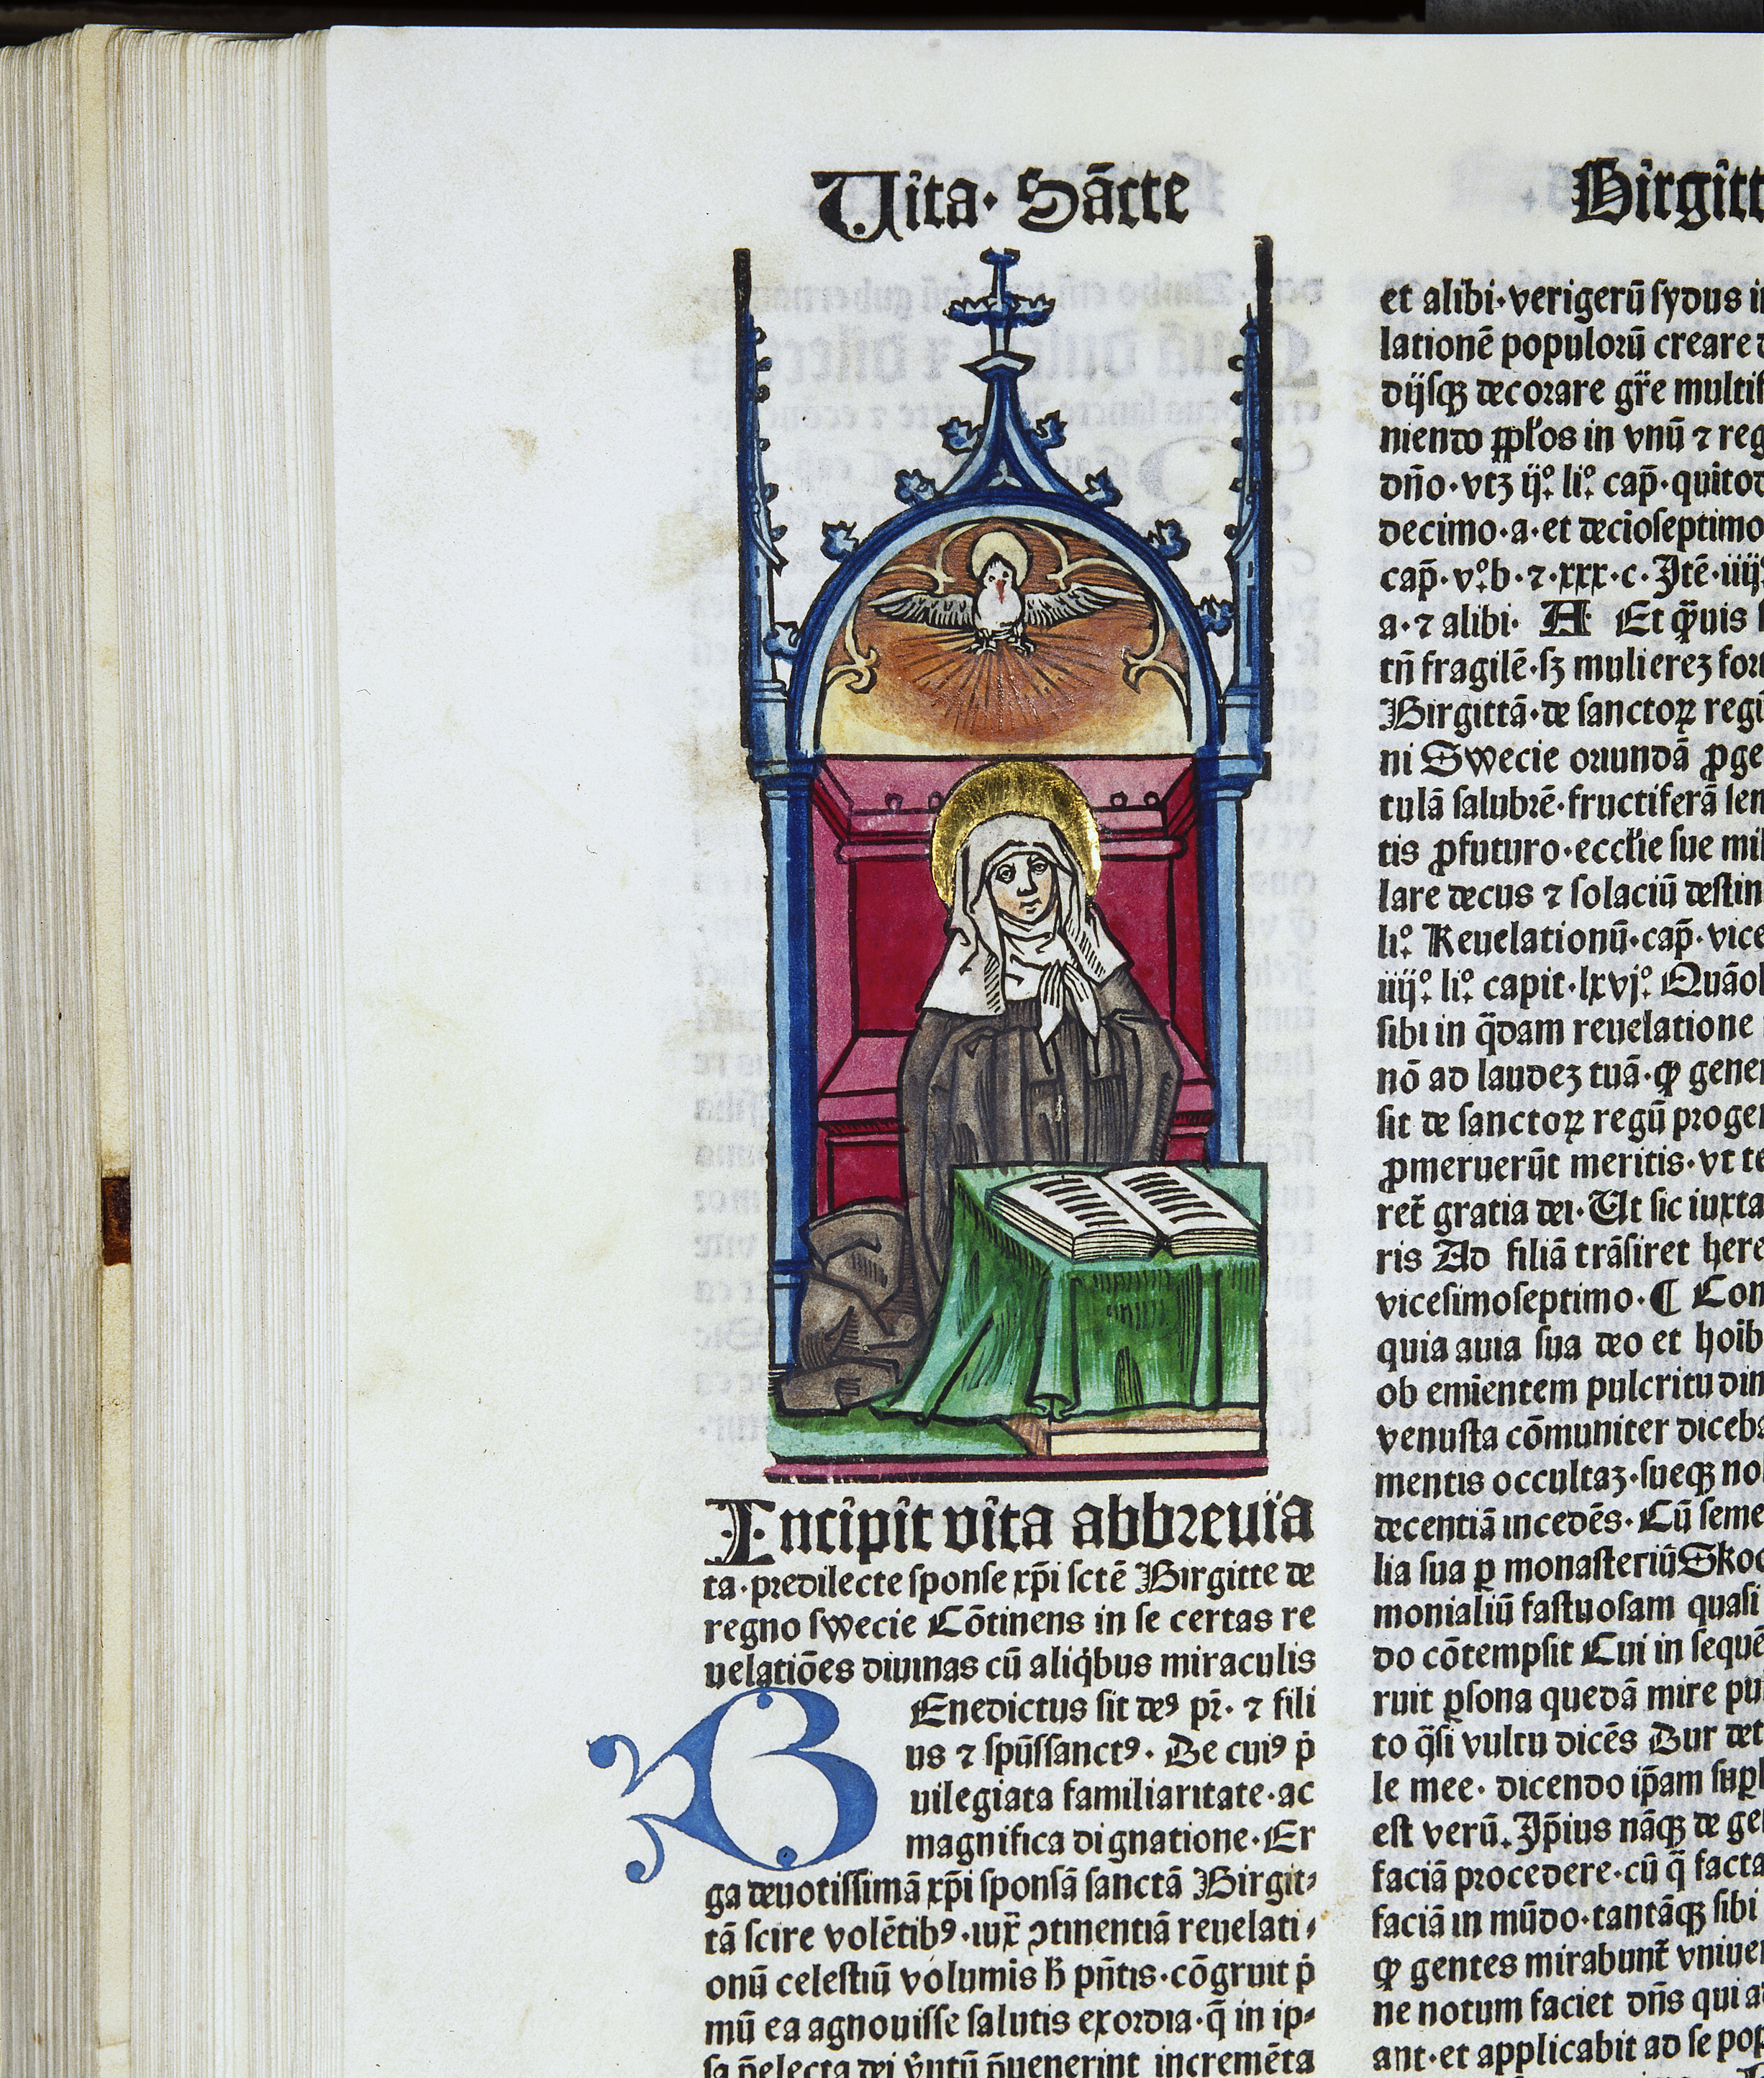 Uita· Sācte
Birgitt
Incipit vita abbreuia
ta·predilecte sponse xp̄i sctē Birgitte de
regno swecie Cōtinens in se certas re
uelatiōes diuinas cū aliq̇bus miraculis
BEnedictus sit deꝰ pr̄· ⁊ fili
us ⁊ spūssanctꝰ· De cuiꝰ ṗ
uilegiata familiaritate·ac
magnifica dignatione·Er
ga deuotissimā xp̄i sponsā sanctā Birgit⸗
tā scire volētibꝰ·iux̄ ↄtinentiā reuelati⸗
onū celestiū volumis h̄ pn̄tis·cōgruit ṗ
mū ea agnouisse salutis exordia·q̄ in ip⸗
sa p̄electa dei p̄uenerint incremēta
et alibi·verigerū sydus i
lationē populoꝛū creare
dijsqꝫ decoꝛare gr̄e multi
niendo ꝓpl̄os in vnū ⁊ reg
dn̄o·vtꝫ ij.° li.° cap̄·quitod
decimo·a·et decioseptimo
cap̄·v.°b·⁊·xxx·c·Itē·iiij
a·⁊ alibi· A Et q̄uis
tn̄ fragilē·sꝫ mulierēꝫ foꝛ
Birgittā·de sanctoꝝ reg
ni Swecie oꝛiundā ꝓge
tulā salubꝛē·fructiferā sem
tis ꝓfuturo·eccl̄ie sue mi
lare decus ⁊ solaciū destin
li.° Reuelationū·cap̄·vice
iiij.° li.° capit·lxvj.° Quāo
sibi in q̄dam reuelatione
nō ad laudeꝫ tuā·ꝙ gene
sit de sanctoꝝ regū pꝛoge
ꝓmeruerūt meritis·vt te
ret̄ gratia dei·Ut sic iuxta
ris Ad filiā trāsiret here
vicesimoseptimo·¶ Con
quia auia sua deo et hoīb
ob emīentem pulcritudin
venusta cōmuniter diceba
mentis occultaꝫ·sueqꝫ no
decentiā incedēs·Cū seme
lia sua ꝑ monasteriū Sko
monialiū fastuosam quasi
do cōtempsit Cui in sequē
ruit ꝑsona quedā mire pu
to q̄si vultu dicēs Cur det
le mee· dicendo ip̄am sup
est verū. Ip̄ius nāqꝫ de ge
faciā pꝛocedere·cū q̄ facta
faciā in mūdo·tantāqꝫ sibi
ꝙ gentes mirabunt̄ vniuer
ne notum faciet dn̄s qui a
ant·et applicabit ad se pop